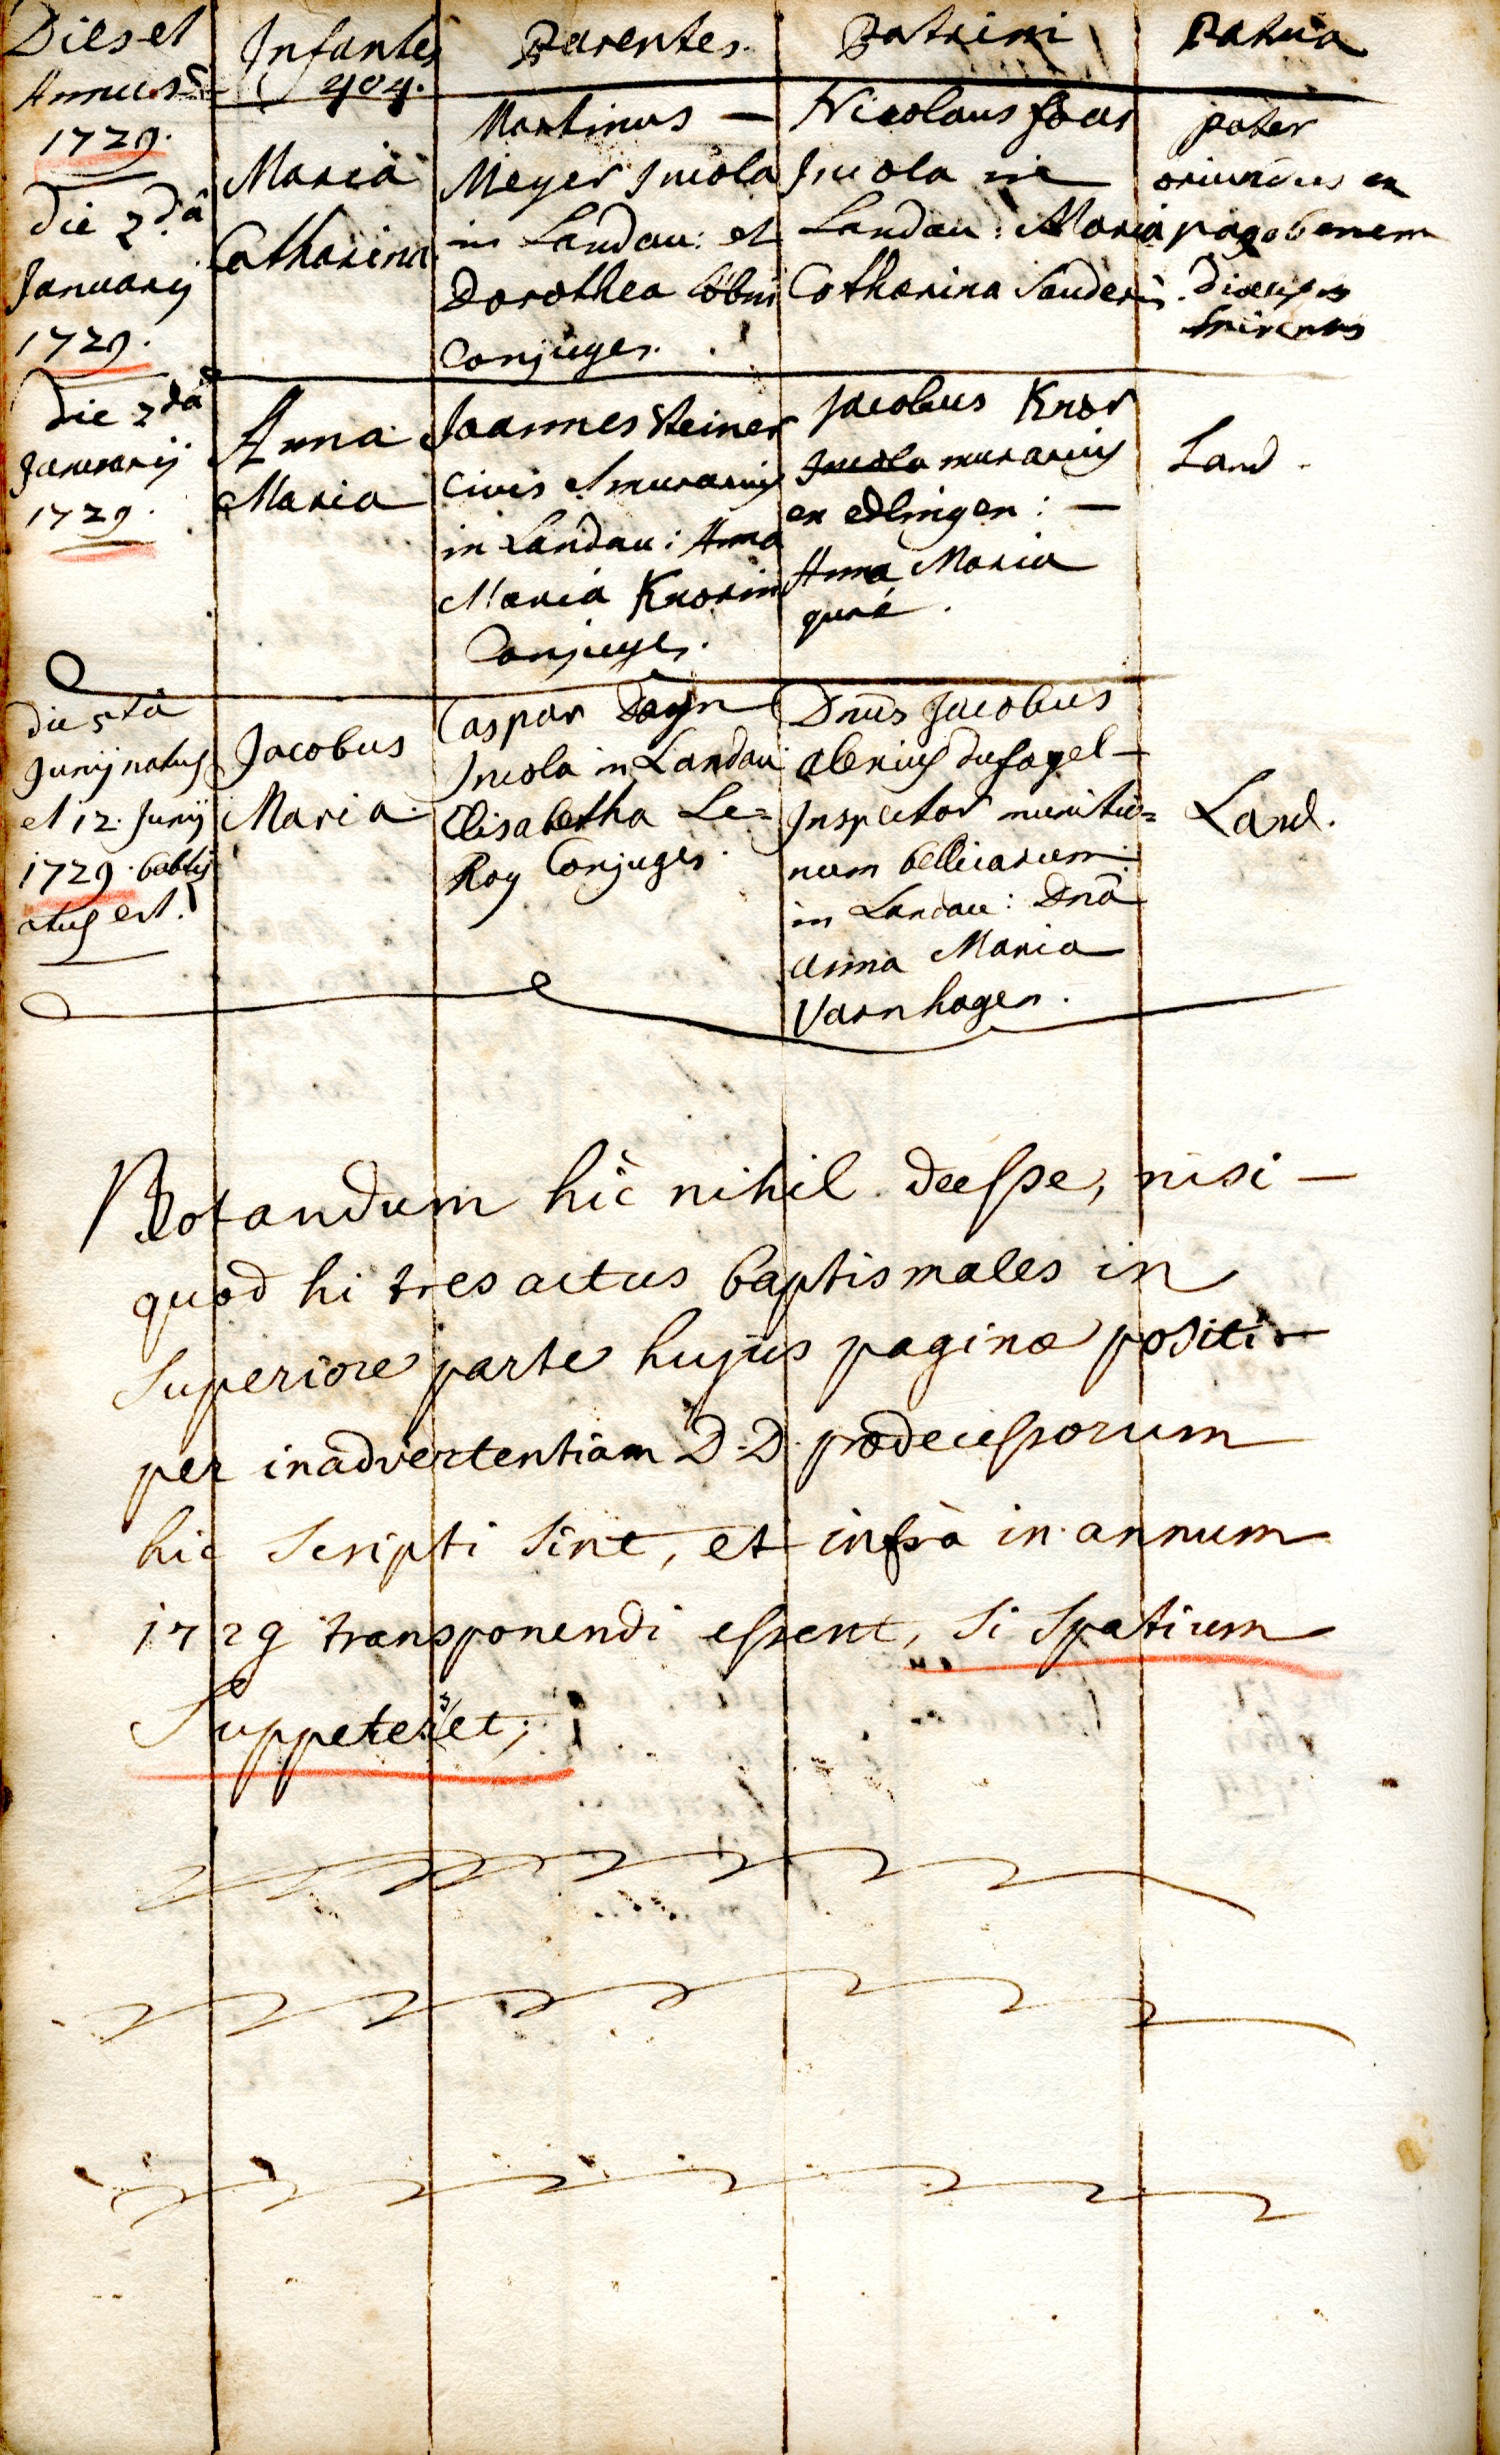 Dies et
Annus
1729.
Infantes
404.
Parentes.
Patrini
Patria
die 2dâ
Januarij
1729.
Maria
Catharina
Martinus —
Meyer Incola
in Landau: et
Dorothea
Conjuges.
Nicolaus
Incola in
Landau: Maria
Catharina Sanderin.
pater
oriundus ex
pago
diœcesis
die 2dâ
Januarij
1729.
Anna
Maria
Joannes Steiner
civis et murarius
in Landau: Anna
Maria Knorin
Conjuges.
Jacobus Knor
murarius
ex edlingen: —
Anna Maria
Land.
die 5tâ
Junij natus
et 12. Junij
1729. babtiz
atus est.
Jacobus
Maria
Caspar
Incola in Landau
Elisabetha Le=
Roy Conjuges.
Dnûs Jacobus
dufayel —
Inspector munitio=
num bellicarum
in Landau: Dnâ
anna Maria
Varnhagen.
Land.
Notandum hîc nihil deesse, nisi —
quod hi tres actus baptismales in
Superiore parte hujus paginæ positi
per inadvertentiam D.D. prædecessorum
hic Scripti Sint, et infrà in annum
1729 transponendi essent, Si Spatium
Suppeteret;